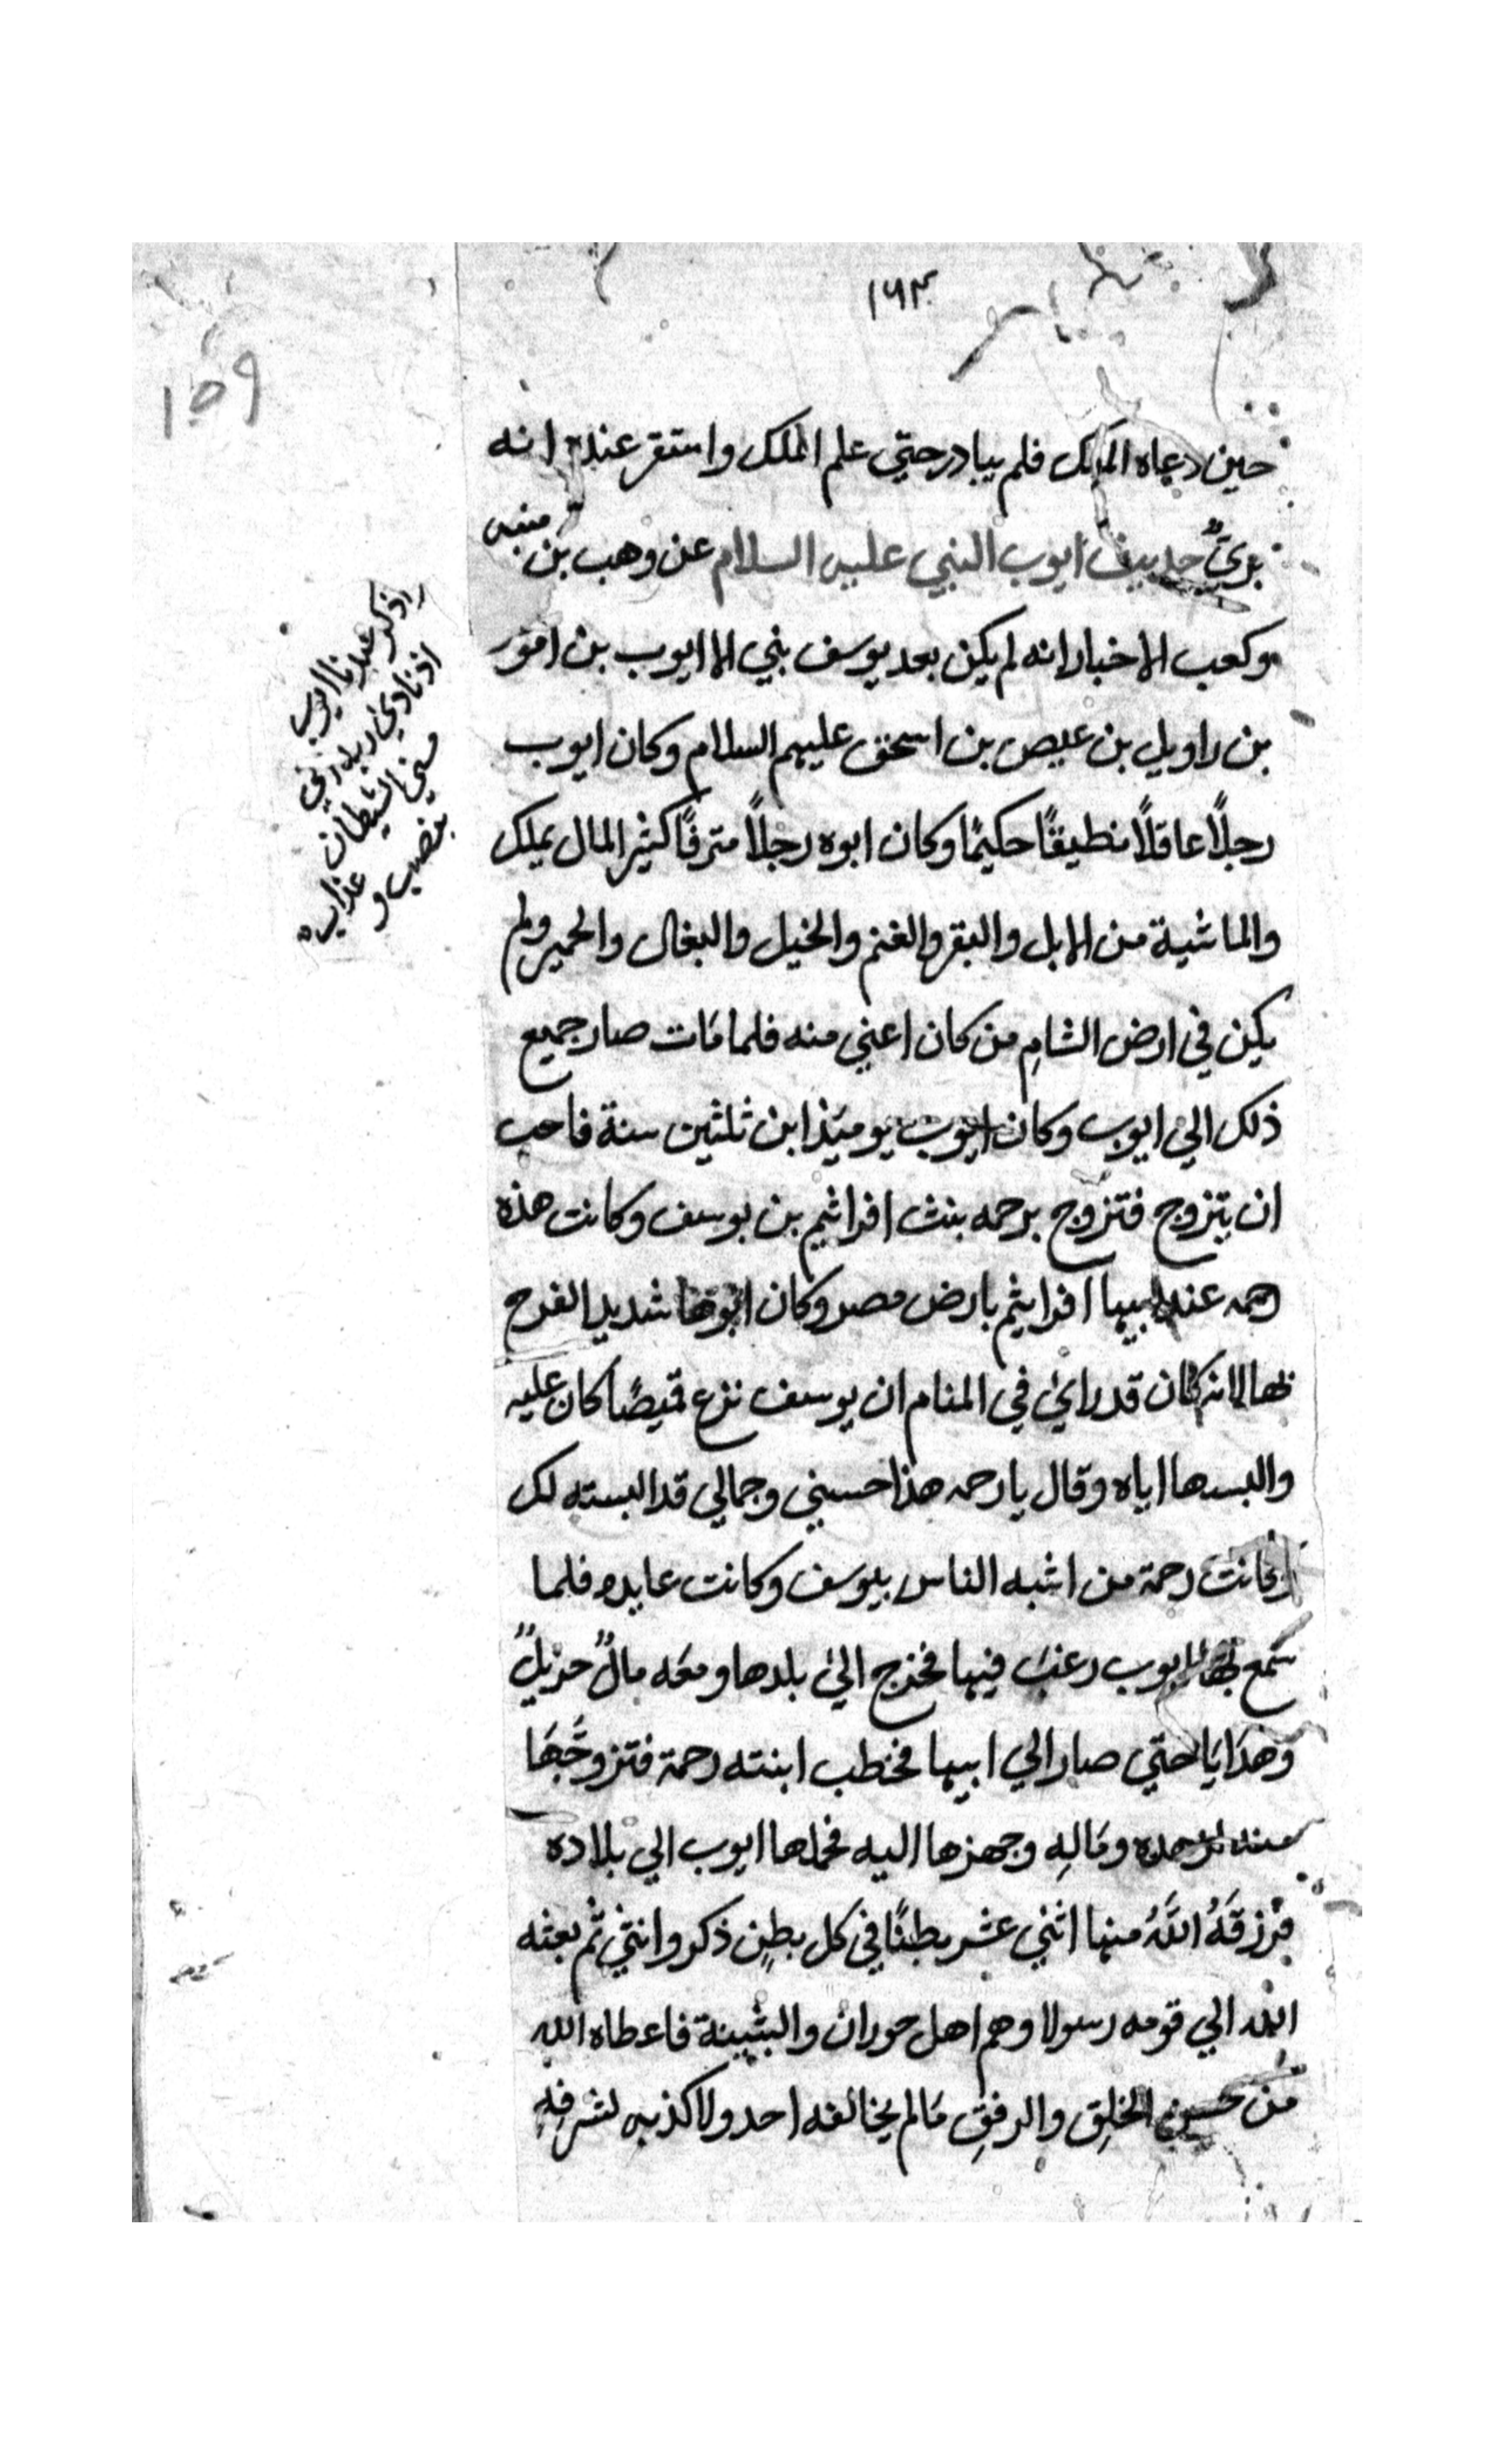 ١٦٣
159
حين دعاه الملك فلم يبادر حتي علم الملك واستقر عنده انه
برئ حديث ايوب النبي عليه السلام عن وهب بن منبه
وكعب الاخبار انه لم يكن بعد يوسف بني الا ايوب بن اموز
بن راويل بن عيص بن اسحق عليهم السلام وكان ايوب
رجلاً عاقلاً نطيقًا حكيمًا وكان ابوه رجلاً مترفًا كثير المال يملك
والماشية من الابل والبقر والغنم والخيل والبغال والحمير ولم
يكن في ارض الشامِ من كان اغني منه فلما مَات صار جميع
ذلك الي ايوب وكان ايوب يوميَذ ابن ثلثين سنة فاحب
ان يتزوج فتزوج برحمه بنت افراثيم بن يوسف وكانت هذه
رحمه عند ابيها افرايثم بارض مصر وكان ابوها شديد الفرح
بها لانه كان قد رائ في المنام ان يوسف نزع قميصًا كان عليه
والبسها اياه وقال يا رحمه هذا حسني وجمالي قد البسته لك
وكانت رحمة من اشبه الناس بيوسف وكانت عابده فلما
سَمع بها ايوب رغبَ فيها فخرج الئ بلدها ومعَه مالٌ جزيلٌ
وَهدَايَا حتي صار الي ابيها فخطب ابنته رحمة فتزوجَّهَا
منه لزهده ومَالِه وجهزها اليه فحملها ايوب الي بلاده
فرزقَهُ اللَّهُ منها اثني عشر بطنًا في كل بطنٍ ذكر وانثي ثم بعثه
الله الي قومه رسولا وهم اهل حوران والبثينة فاعطاه الله
مَن حسن الخلِق والرفقِ مَا لم يخالفه احد ولا كذبه لشرفهِ
واذكر عبدنا ايوب
اذ نادئ ربه اني
مسني الشيطان
بنصب و
عذاب